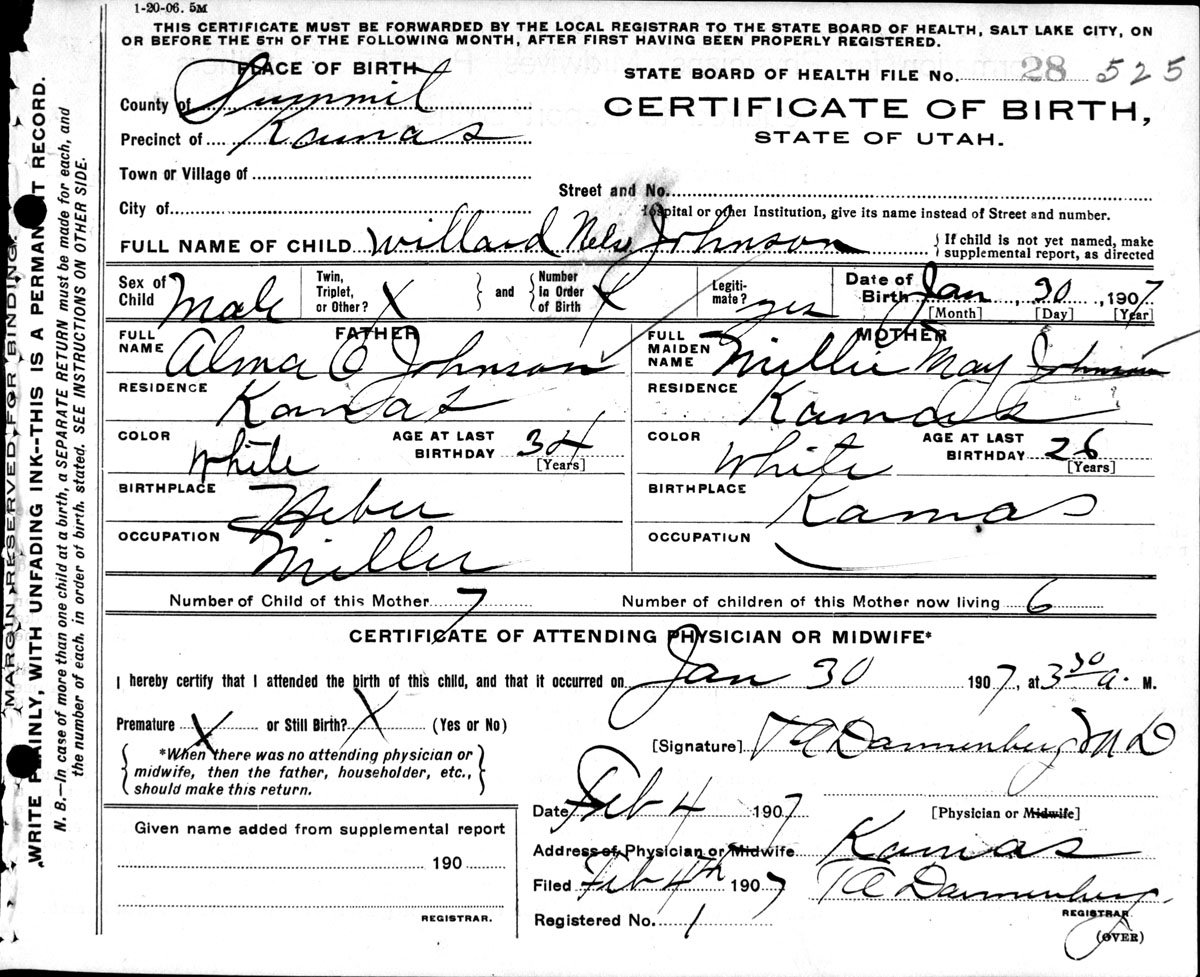 1-20-06. 5M
THIS CERTIFICATE MUST BE FORWARDED BY THE LOCAL REGISTRAR TO THE STATE BOARD OF HEALTH, SALT LAKE CITY, ON
OR BEFORE THE 5TH OF THE FOLLOWING MONTH, AFTER FIRST HAVING BEEN PROPERLY REGISTERED.
PLACE OF BIRTH
STATE BOARD OF HEALTH FILE No. 28 525
County of Summit
CERTIFICATE OF BIRTH,
Precinct of Kamas
STATE OF UTAH.
Town or Village of
Street and No.
City of
Hospital or other Institution, give its name instead of Street and number.
FULL NAME OF CHILD Willard Nels Johnson
{ If child is not yet named, make
supplemental report, as directed
Sex of Child Male
Twin, Triplet, or Other? X } and { Number in Order of Birth X
Legiti-mate? yes
Date of Birth Jan 30, 1907
[Month] [Day] [Year]
FATHER
MOTHER
FULL NAME Alma O Johnson
FULL MAIDEN NAME Millie May Johnson
RESIDENCE Kamas
RESIDENCE Kamas
COLOR White AGE AT LAST BIRTHDAY 34 [Years]
COLOR White AGE AT LAST BIRTHDAY 26 [Years]
BIRTHPLACE Heber
BIRTHPLACE Kamas
OCCUPATION Miller
OCCUPATION
Number of Child of this Mother 7
Number of children of this Mother now living 6
CERTIFICATE OF ATTENDING PHYSICIAN OR MIDWIFE*
I hereby certify that I attended the birth of this child, and that it occurred on Jan 30 1907, at 3 30 a. M.
Premature X or Still Birth? X (Yes or No)
{ *When there was no attending physician or
midwife, then the father, householder, etc.,
should make this return. }
[Signature] Dannenberg M D
Date Feb 4 1907
[Physician or Midwife]
Given name added from supplemental report
190
REGISTRAR.
Address of Physician or Midwife Kamas
Filed Feb 4th 1907 Dannenberg
REGISTRAR.
Registered No. 1
(OVER)
MARGIN RESERVED FOR BINDING.
WRITE PLAINLY, WITH UNFADING INK--THIS IS A PERMANENT RECORD.
N. B.—In case of more than one child at a birth, a SEPARATE RETURN must be made for each, and
the number of each, in order of birth, stated. SEE INSTRUCTIONS ON OTHER SIDE.